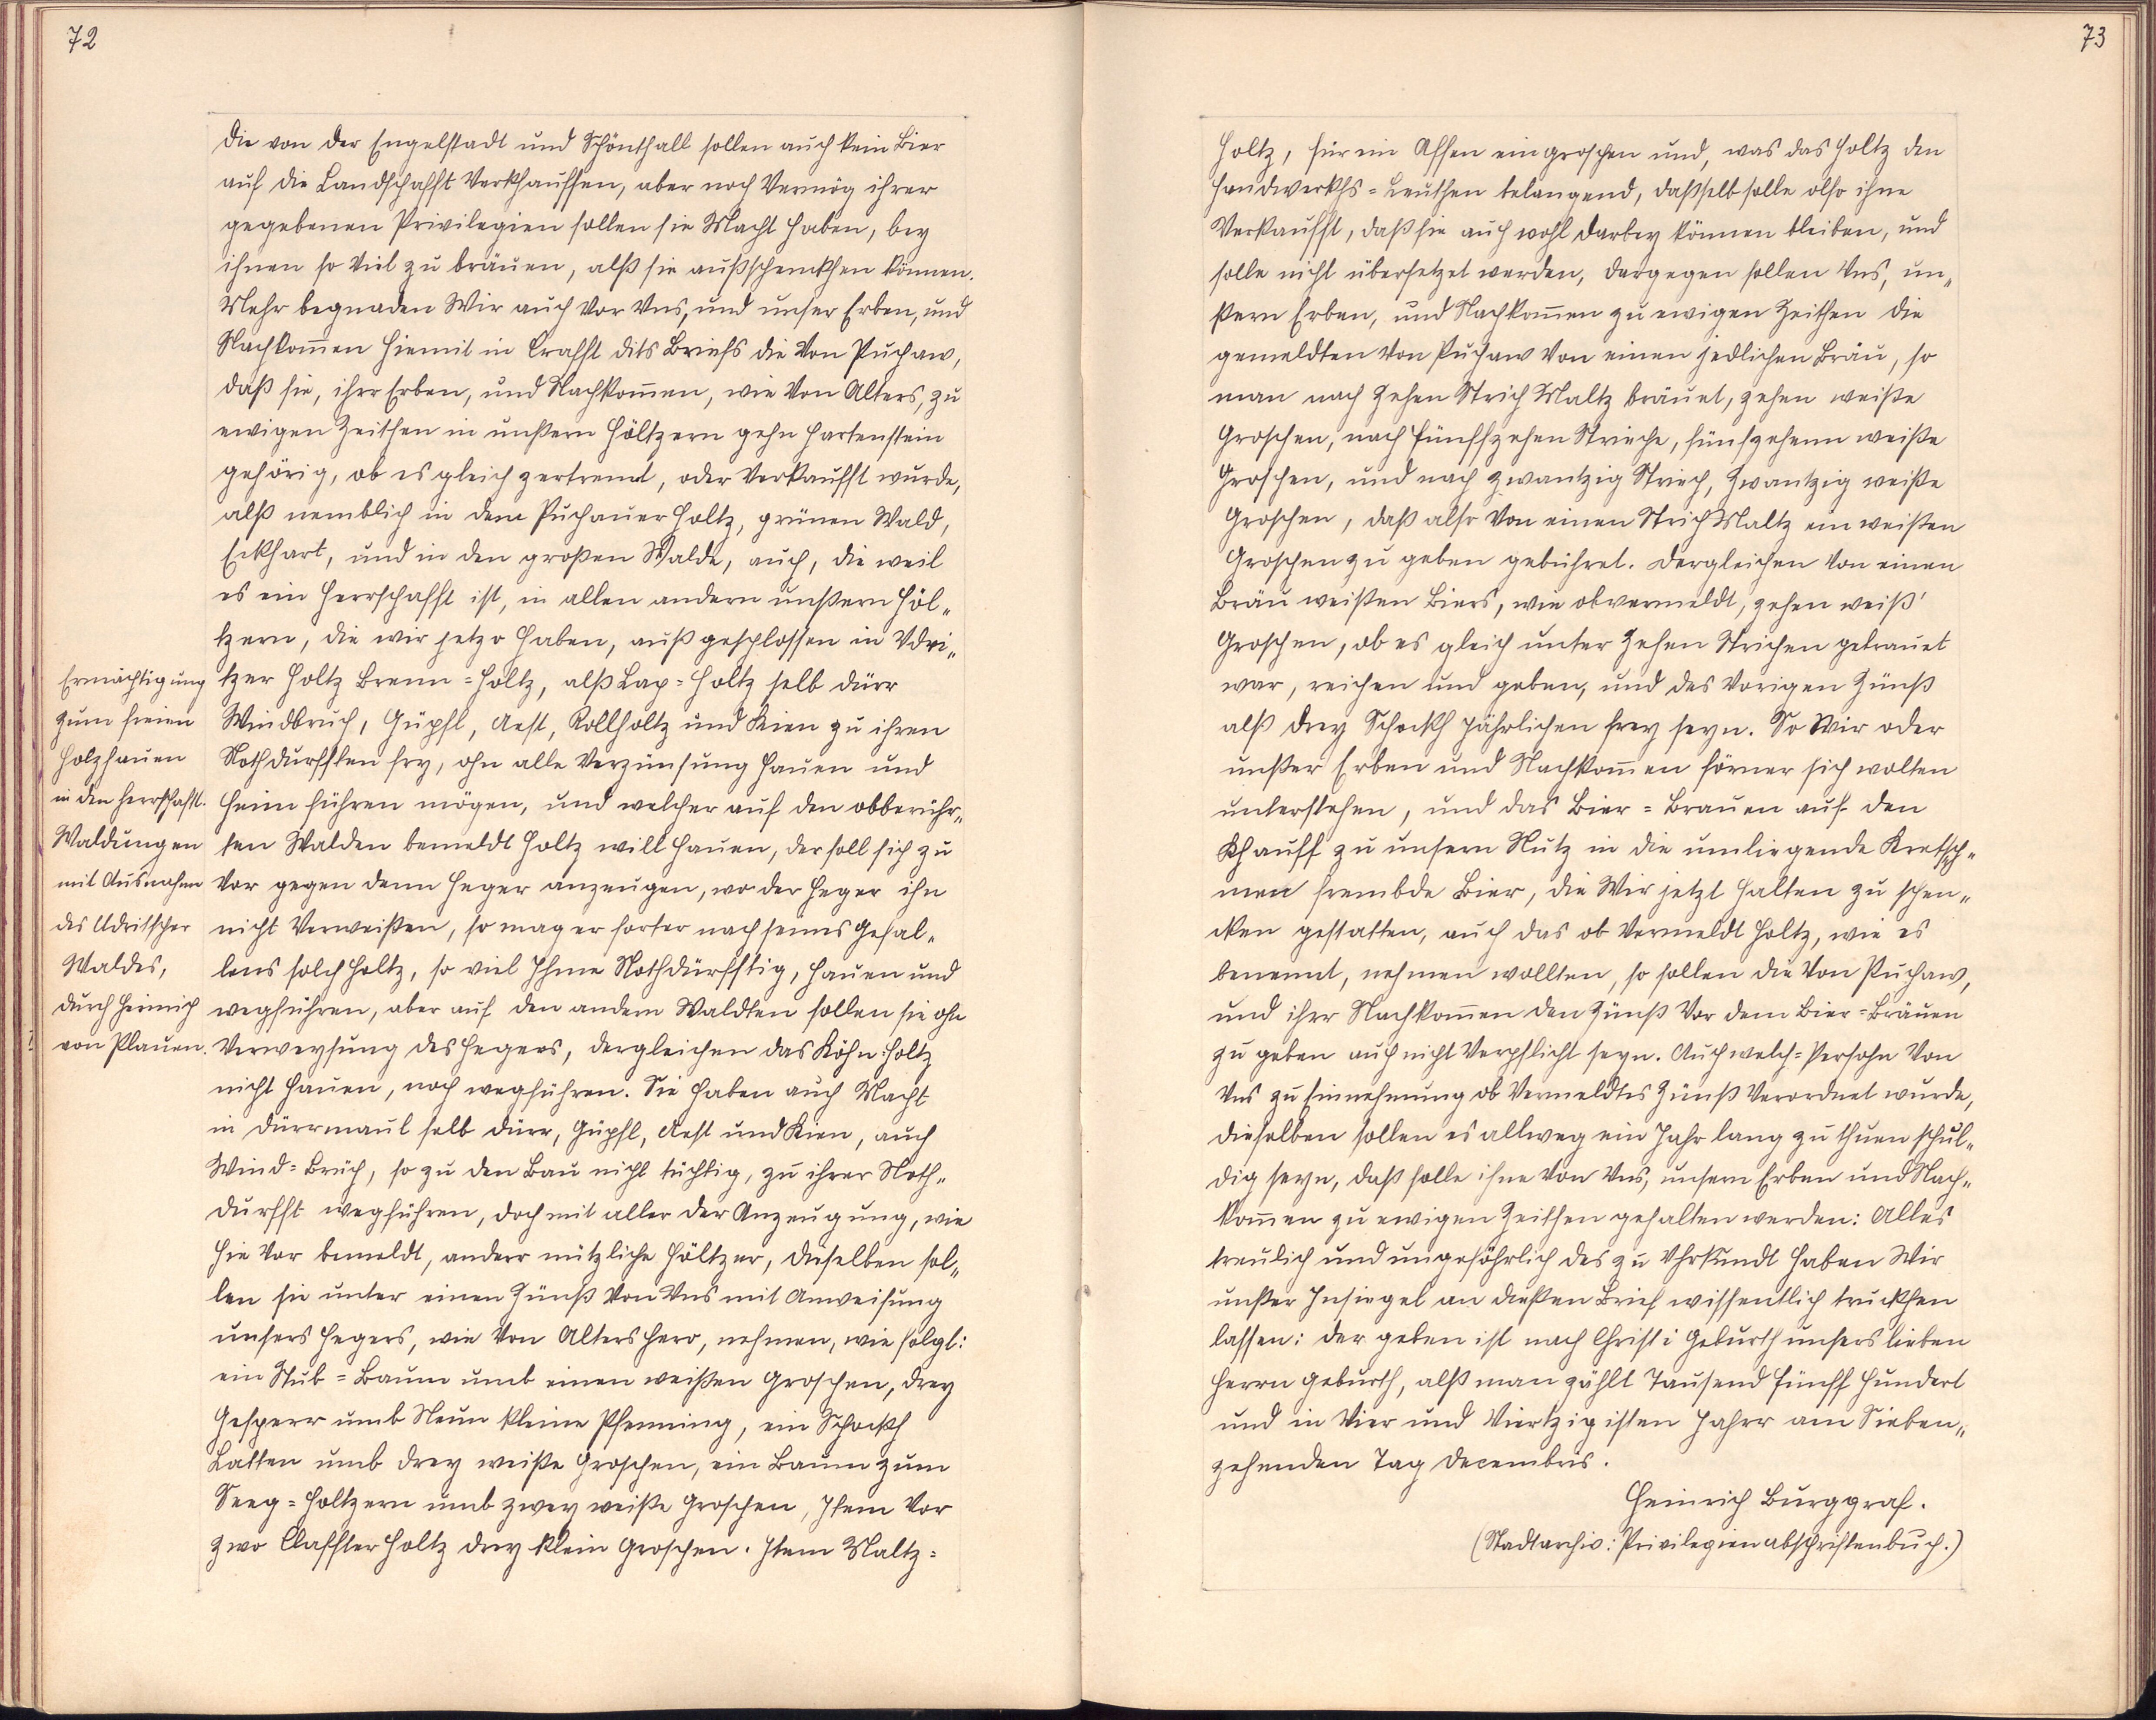 72
die von der Engelstadt und Schönthall sollen auch kein Bier
auf die Landschafft Verkhauffen, aber noch Vermög ihrer
gegebenen Privilegien sollen sie Macht haben, bey
ihnen so Viel zu bräuen, alß sie außschenckhen können.
Mehr begnaden Wir auch Vor Vns, und unser Erben, und
Nachkom̄en hiemit in Crafft dits Briefs die Von Puchaw,
daß sie, ihre Erben, und Nachkom̄en, wie Von Alters, zu
ewigen Zeithen in unßern Höltzern gehn Hartenstein
gehörig, ob es gleich zertrennt, oder Verkaufft wurde,
alß nemblich in dem Puchauer Holtz, grünen Wald,
Eckhart, und in den großen Walde, auch, die weil
es ein Herrschafft ist, in allen andern unßern Höl„
tzern, die wir jetzo haben, auß geschlossen in Vdri„
tzer Holtz Brenn=Holtz, alß Lap=Holtz selb dürr
Windbruch, Güpfl, Aest, Rollholtz und Kien zu ihren
Nothdurfften frey, ohn alle Verzünsung hauen und
heim führen mögen, und welcher auf den obberühr„
ten Walden bemeldt Holtz will hauen, der soll sich zu
Vor gegen denn Heger anzeugen, wo der Heger ihn
nicht Verweißen, so mag er forter nach seines Gefal„
lens solch Holtz, so viel Ihme Nothdürfftig, hauen und
wegführen, aber auf den andern Waldten sollen sie ohn
Verweysung des Hegers, dergleichen das Röhn=Holtz
nicht hauen, noch wegführen. Sie haben auch Macht
in Dürrmaul selb dürr, Güpfl, Aest und Kien, auch
Wind=Brüch, so zu den Bau nicht tüchtig, zu ihrer Noth„
durfft wegführen, doch mit aller der Anzeugung, wie
hie Vor bemeldt, andere nützliche Höltzer, dieselben sol„
len sie unter einen Zünß Von Vns mit Anweisung
unsers Hegers, wie Von Alters hero, nehmen, wie folgt:
ein Stub=Baum umb einen weißen Groschen, drey
Gesperr umb Neun kleine Pfenning, ein Schockh
Latten umb drey weiße Groschen, ein Baum zum
Seeg=Holtzern umb zwey weiße Groschen, Item Vor
zwo Claffter Holtz drey klein Groschen. Item Maltz=
Ermächtigung
zum freien
Holzhauen
in den herrschaftl.
Waldungen
mit Ausnahm
des Udritscher
Waldes,
durch Heinrich
von Plauen.
73
Holtz, für ein Assen ein groschen und, was das Holtz den
Handwerkhs=Leuthen belangend, daßselb solle also ihne
Verkaufft, daß sie auch wohl darbey können bleiben, und
solle nicht übersetzet werden, dargegen sollen Vns, un„
ßern Erben, und Nachkom̄en zu ewigen Zeithen die
gemeldten Von Puchaw Von einen jedlichen Bräu, so
man nach Zehen Strich Maltz bräuet, zehen weiße
Groschen, nach fünffzehen Striche, fünfzehenn weiße
Groschen, und nach zwantzig Strich, Zwantzig weiße
Groschen, daß also Von einen Strich Maltz ein weißen
Groschen zu geben gebühret. Dergleichen Von einen
Bräu weißen Biers, wie obvermeldt, zehen weiß'
Groschen, ob es gleich unter Zehen Strichen gebrauet
war, reichen und geben, und des Vorigen Zünß
alß drey Schockh jährlichen frey seyn. So Wir oder
unßer Erben und Nachkom̄en förner sich wolten
unterstehen, und das Bier=Brauen auf den
Khauff zu unsern Nutz in die umliegende Kretsch„
men frembde Bier, die Wir jetzt halten zu schen„
cken gestatten, auch das ob Vermeldt Holtz, wie es
benennt, nehmen wollten, so sollen die Von Puchaw,
und ihre Nachkom̄en den Zünß Vor dem Bier=Bräuen
zu geben auch nicht Verpflicht seyn. Auch welch=Persohn Von
Vns zu Einnehmung ob Vermeldtes Zünß Verordnet wurde,
dieselben sollen es allweg ein Jahr lang zu thuen schul„
dig seyn, daß solle ihne Von Vns, unsern Erben und Nach„
kom̄en zu ewigen Zeithen gehalten werden: Alles
treulich und ungefährlich des zu Vhrkundt haben Wir
unßer Insiegel an dießen Brief wissentlich truckhen
lassen: der geben ist nach Christi Geburth unsers lieben
Herrn Geburth, alß man zählt Tausend fünff Hundert
und in Vier und Viertzigisten Jahre am Sieben„
zehenden Tag Decembris.
Heinrich Burggraf.
(Stadtarchiv: Privilegienabschriftenbuch.)